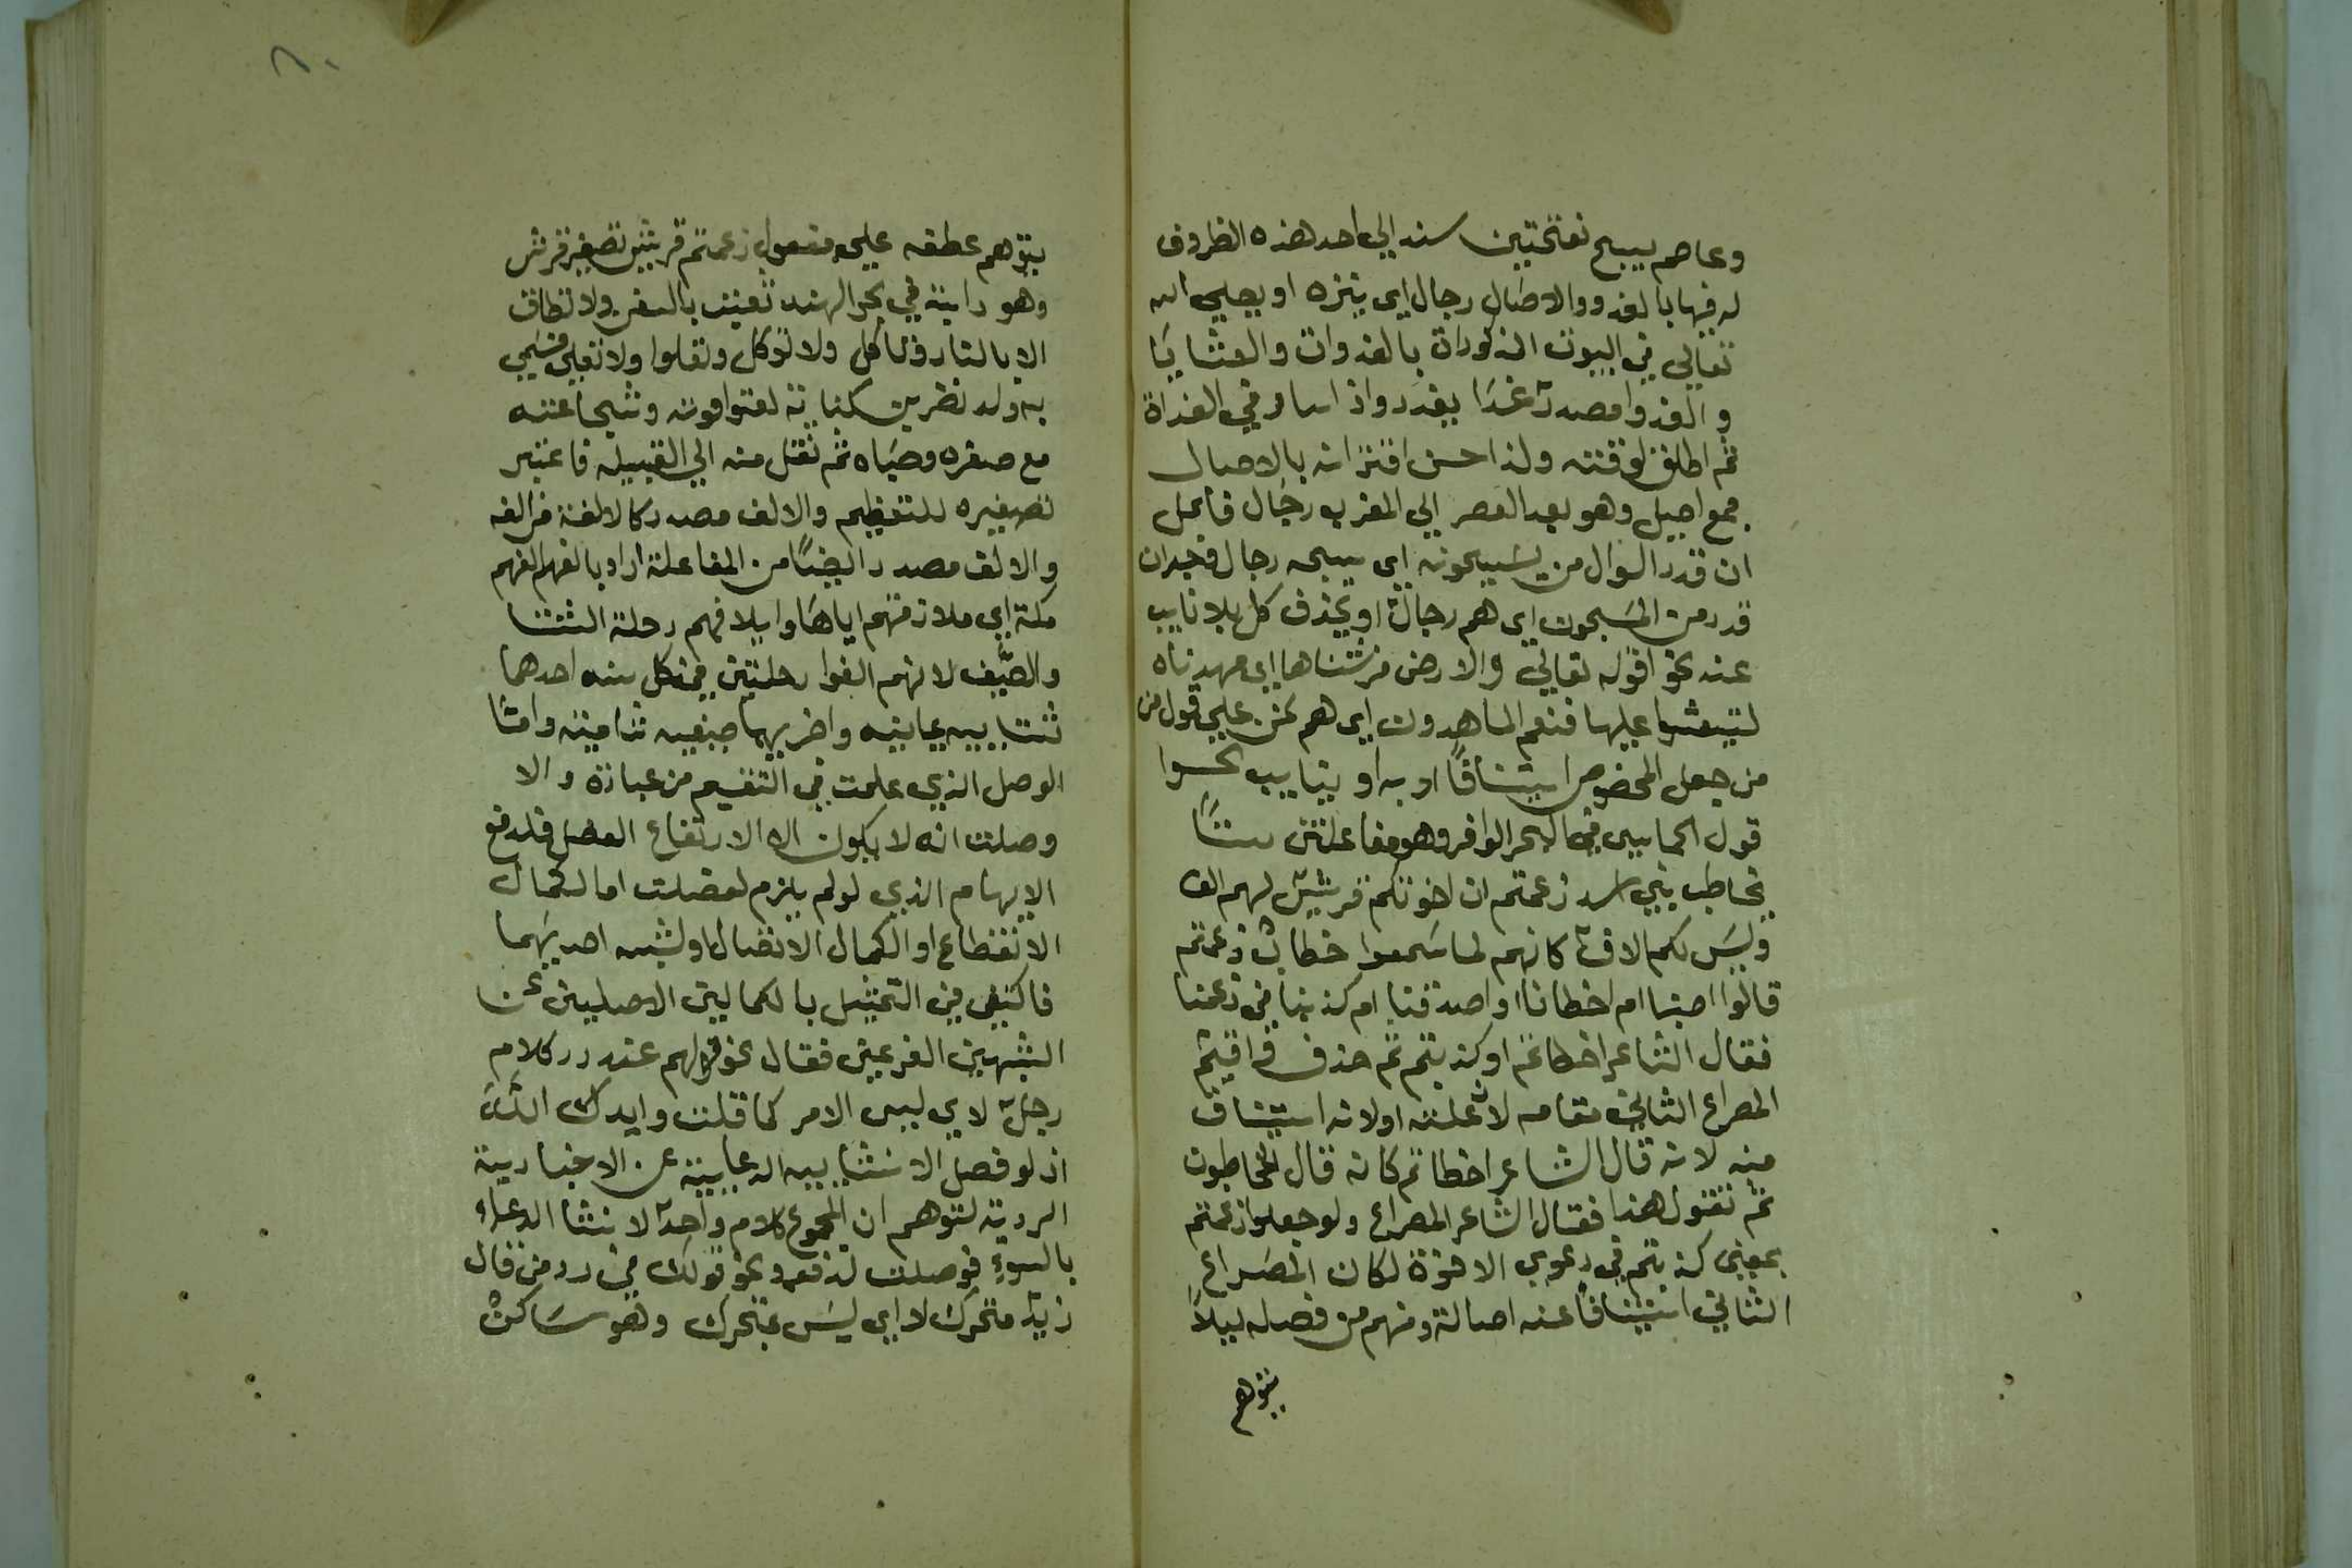 وعاصم يسبح بفتحتين سند الي احد هذه الظروف
له فيها بالغدو والاصال رجال اي ينزه او يصلي لله
تعالي في البيوت المذكورات بالغدوات والعشايا
و الغدوا مصدر غدا يغدو اذا سار في الغداة
ثم اطلق لوقته ولذا حسن اقترانه بالاصال
جمع اصيل وهو بعد العصر الي المغرب رجال فاعل
ان قدر السوال من يسبحونه اي يسبحه رجال وخبر ان
قدر من المسبحون اي هم رجال او يحذف كل بلا نايب
عند نحو قوله تعالي والارض فرشناها اي مهدناه
عليها فنعم الماهدون اي هم نحن علي قول من
من جعل المخصوص استينافا او به او بنايب نحوا
قول الحماسي في البحر الوافر وهو مفاعلتن ستا
يخاطب بني اسد زعمتم ان اخوتكم قريش لهم الف
وليس لكم الاف كانهم لما سمعوا خطاب زعمتم
قالوا اصبنا ام اخطانا او اصدقنا ام كذبنا في زعمنا
فقال الشاعر اخطاتم او كذبتم ثم حذف واقيم
المصراع الثاني مقامه لانه علته او لانه استيناف
منه لانه قال الشاعر اخطاتم كانه قال المخاطبون
ثم تقول هذا فقال الشاعر المصراع ولو جعلوا زعمتم
بمعني كذبتم في دعوي الاخوة لكان المصراع
الثاني استينافا عنه اصالة ومنهم من فصله ليلا
يتوهم
٨٠
يتوهم عطفه علي مفعول زعمتم قريش تصغير قرش
وهو دابة في بحر الهند تعبث بالسفن ولا تطاق
الا بالنار وتاكل ولا توكل وتعلوا ولا تعلي فسمي
به ولد نضر بن كنانة لقوته وشجاعته
مع صغره وصباه ثم نقل منه الي القبيله فاعتبر
تصغيره للتعظيم والالف مصدر كالالفة من الفه
والالف مصدر ايضا من المفاعلة اراد بالفهم الفهم
مكة اي ملازمتهم اياها وايلافهم رحلة الشتا
والصيف لانهم الفوا رحلتين في كل سنه احدهما
شتاييه يمانيه واخريهما صيفيه شاميه وامثا
الوصل الذي علمت في التقسيم من عبارة والا
وصلت انه لا يكون الا لارتفاع الفصل فلدفع
الايهام الذي لو لم يلزم لفصلت اما لكمال
الانقطاع او الكمال الاتصال او لشبه احديهما
فاكتفي في التمثيل بالكمالين الاصليين عن
الشبهين الفرعين فقال نحو قولهم عند رد كلام
رجل لا اي ليس الامر كما قلت وايدك الله
اذ لو فصل الانشاييه الدعاييه عن الاخبارية
الردية لتوهم ان المجموع كلام واحد لانشا الدعاء
بالسوء فوصلت لدفعه ونحو قولك في رد من قال
زيد متحرك لا اي ليس بمتحرك وهو ساكن